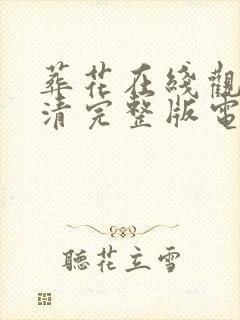 葬花在綫觀
清完整版電
聽花立雪